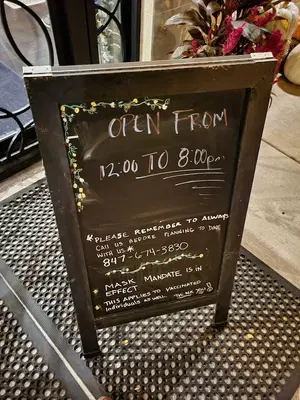 OPEN FROM
12:00 TO 8:00pm
*PLEASE REMEMBER TO ALWAYS
CALL US BEFORE PLANNING TO DINE
WITH US*
847-674-3830
MASK MANDATE IS IN
EFFECT
THIS APPLIES TO VACCINATED
Individuals AS WELL. THANK YOU!